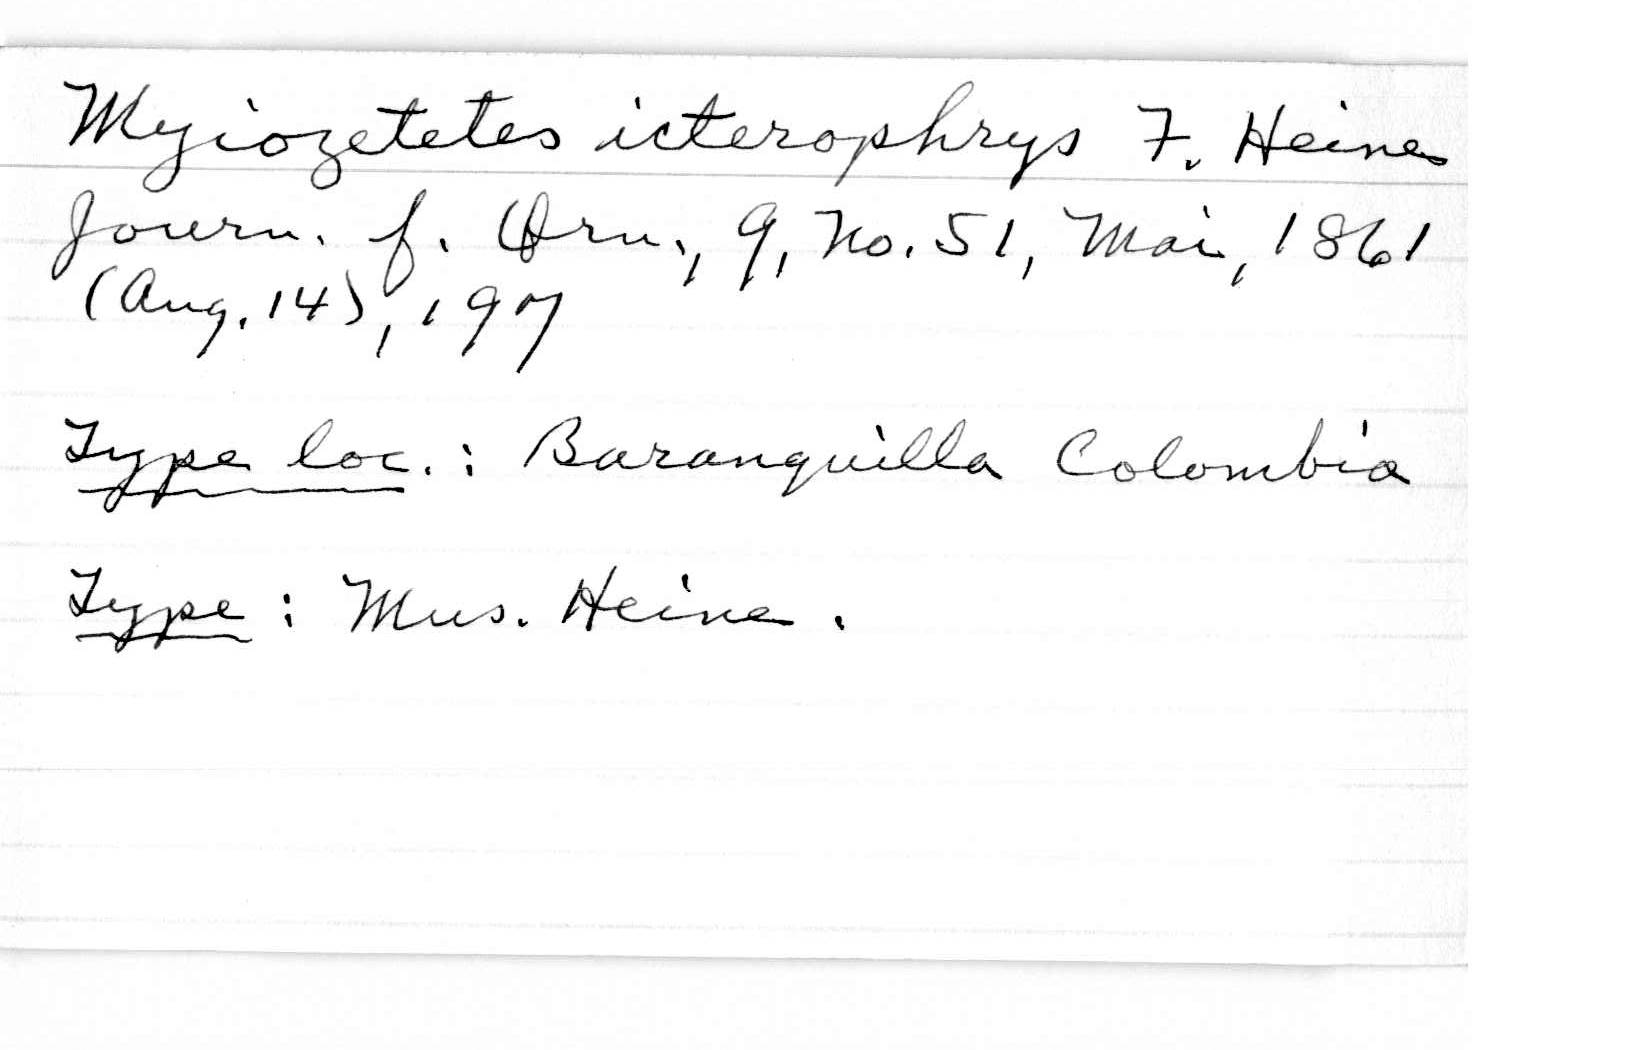 Myiozetetes icterophrys F. Heine
Journ. f. Orn., 9, No. 51, Mai, 1861
(Aug. 14), 197
Type loc.: Baranquilla Colombia
Type: Mus. Heine.